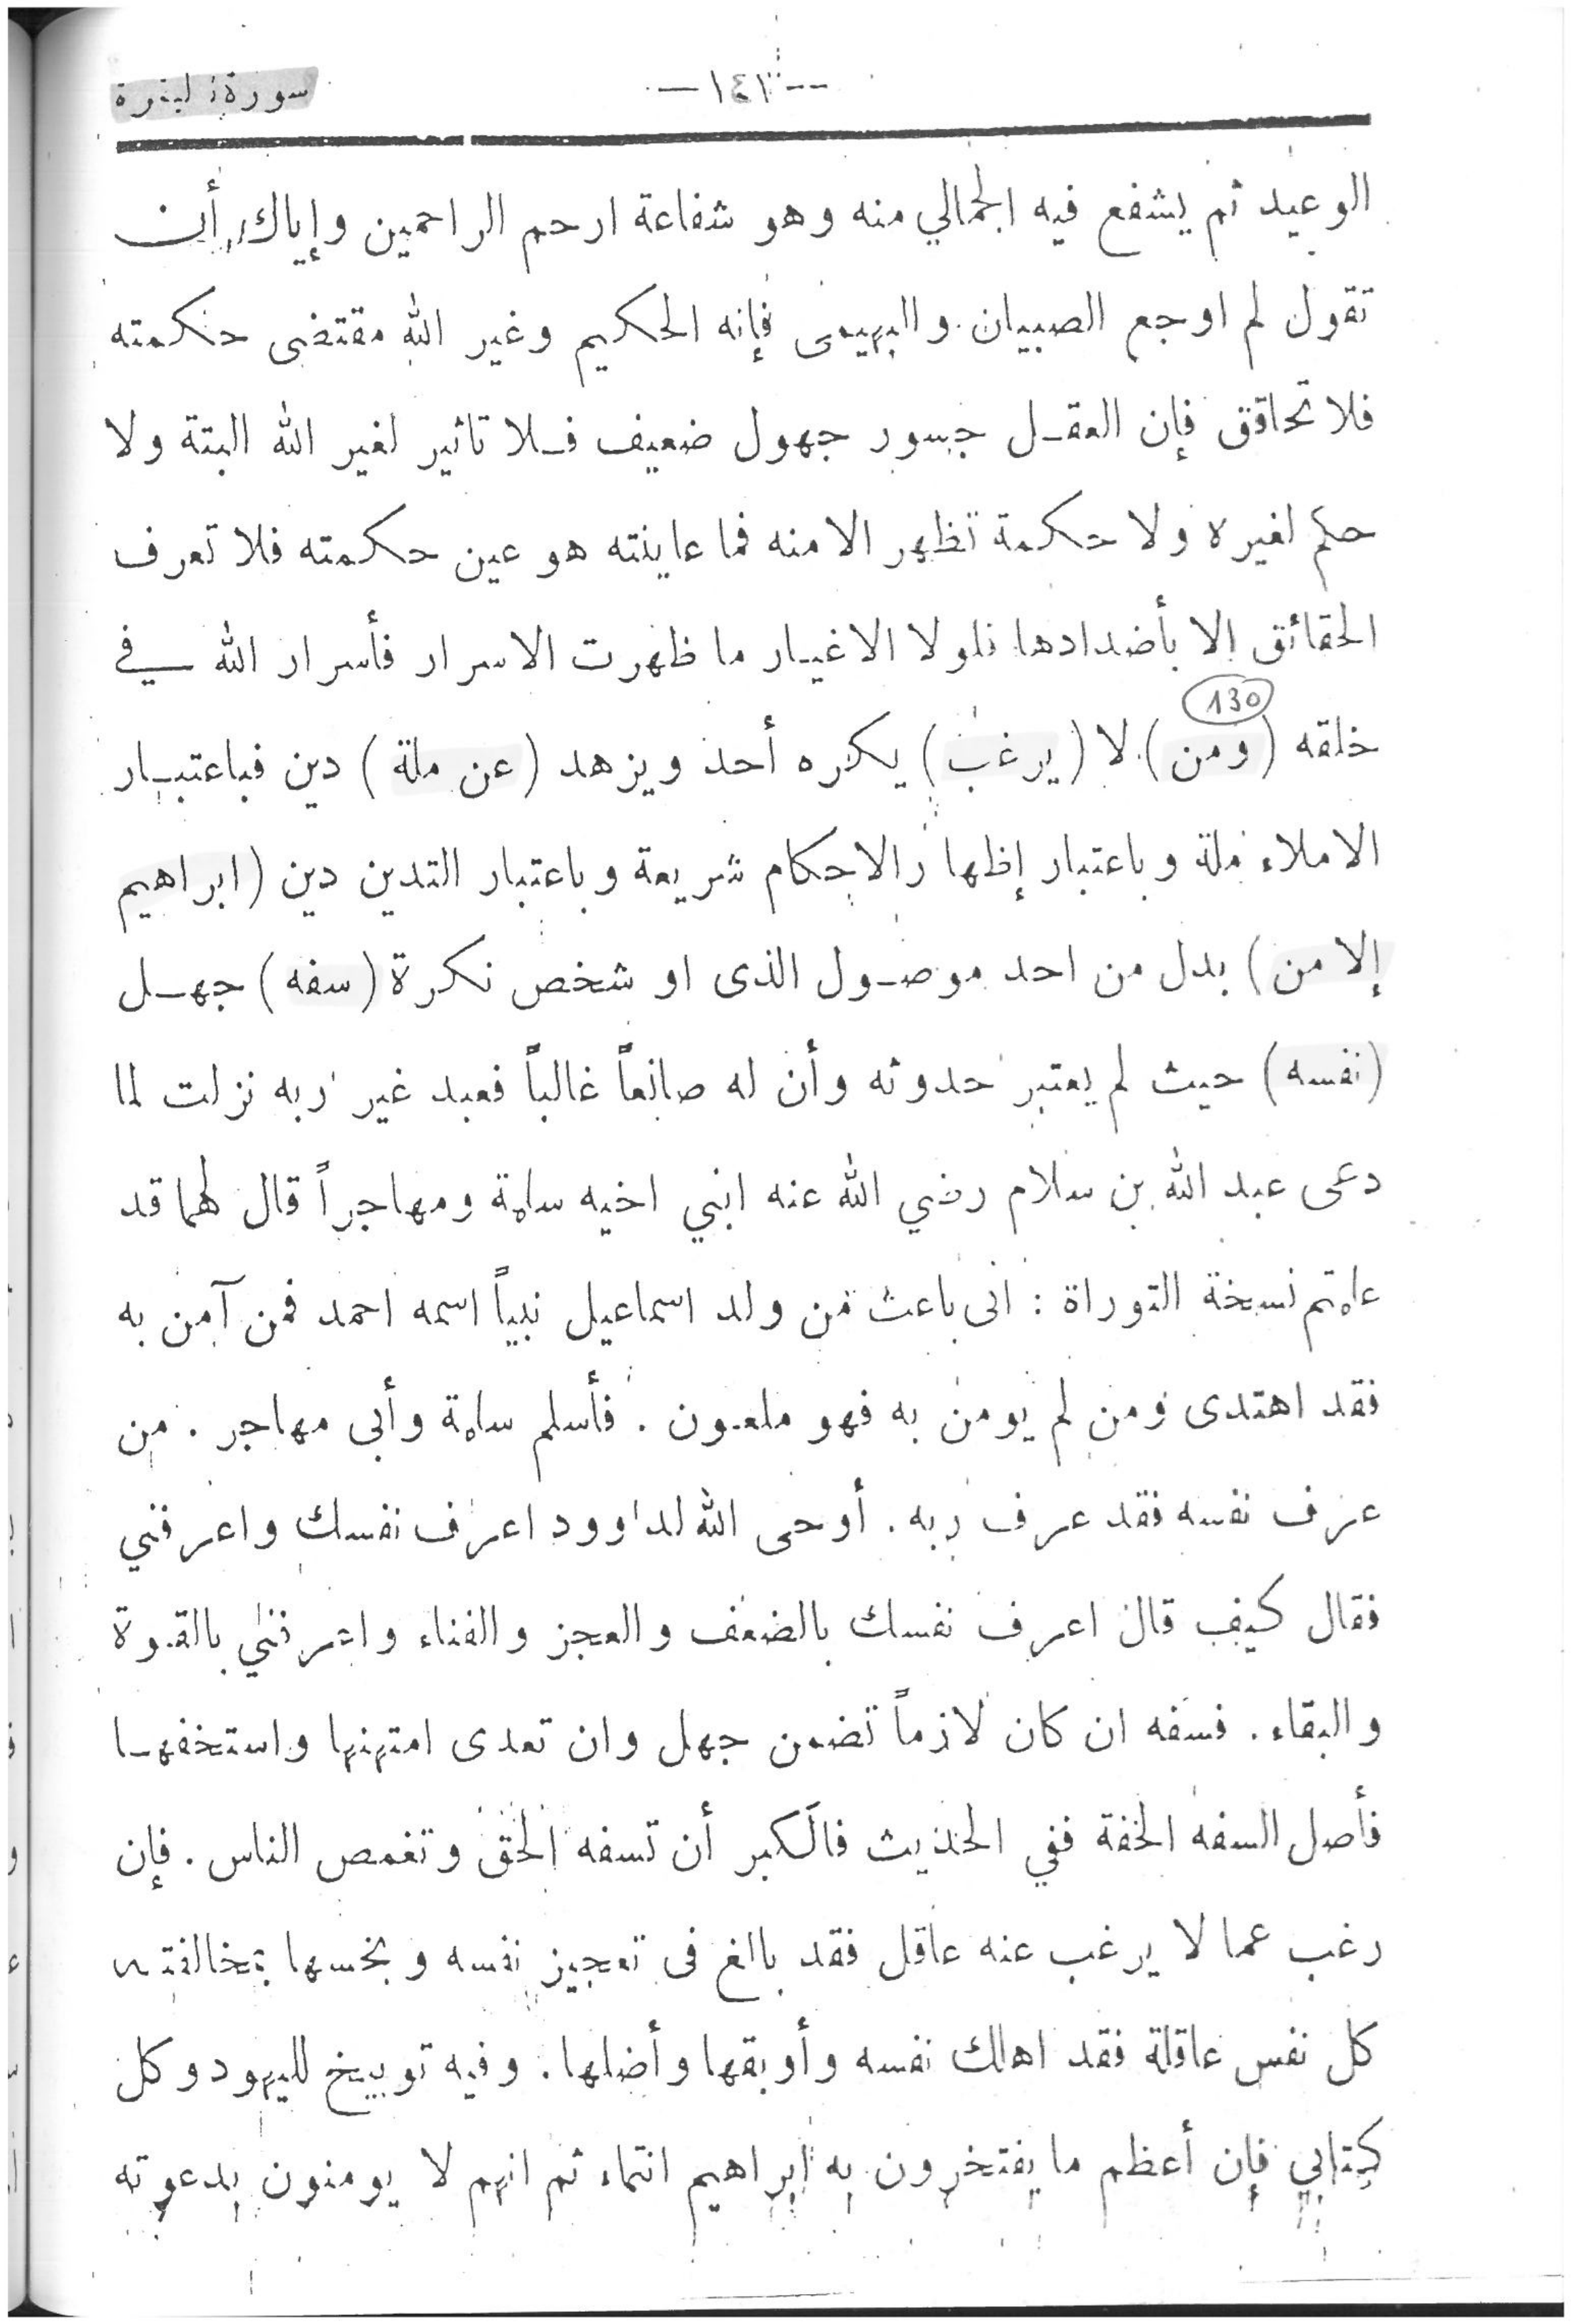 سورة البقرة
— ١٤١ —
الوعيد ثم يشفع فيه الجمالي منه وهو شفاعة ارحم الراحمين وإياك أن
تقول لم اوجع الصبيان والبهيمى فإنه الحكيم وغير الله مقتضى حكمته
فلا تحاقق فإن العقل جسور جهول ضعيف فلا تاثير لغير الله البتة ولا
حكم لغيره ولا حكمة تظهر الا منه فما عاينته هو عين حكمته فلا تعرف
الحقائق إلا بأضدادها فلولا الاغيار ما ظهرت الاسرار فأسرار الله في
130
خلقه (ومن) لا (يرغب) يكره أحد ويزهد (عن ملة) دين فباعتبار
الاملاء ملة وباعتبار إظهار الاحكام شريعة وباعتبار التدين دين (ابراهيم
إلا من) بدل من احد موصول الذى او شخص نكرة (سفه) جهل
(نفسه) حيث لم يعتبر حدوثه وأن له صانعاً غالباً فعبد غير ربه نزلت لما
دعى عبد الله بن سلام رضي الله عنه ابني اخيه سلمة ومهاجراً قال لهما قد
علمتم نسخة التوراة : انى باعث من ولد اسماعيل نبياً اسمه احمد فمن آمن به
فقد اهتدى ومن لم يومن به فهو ملعون . فأسلم سلمة وأبى مهاجر . من
عرف نفسه فقد عرف ربه . أوحى الله لداوود اعرف نفسك واعرفني
فقال كيف قال اعرف نفسك بالضعف والعجز والفناء واعرفني بالقوة
والبقاء . فسفه ان كان لازماً تضمن جهل وان تعدى امتهنها واستخفها
فأصل السفه الخفة ففي الحديث فالكبر أن تسفه الحق وتغمص الناس . فإن
رغب عما لا يرغب عنه عاقل فقد بالغ فى تعجيز نفسه وبخسها بمخالفته
كل نفس عاقلة فقد اهلك نفسه وأوبقها وأضلها . وفيه توبيخ لليهود وكل
كتابي فإن أعظم ما يفتخرون به ابراهيم انتماء ثم انهم لا يومنون بدعوته